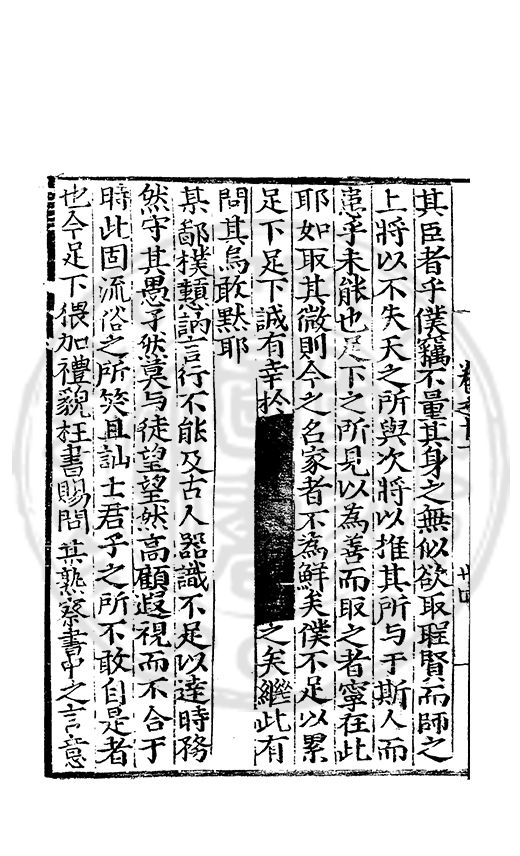 卷之十一
廿四
其臣者乎僕竊不量其身之無似欲取聖賢而師之
上將以不失天之所與次將以推其所与于斯人而
患乎未能也足下之所見以為善而取之者寧在此
耶如取其微則今之名家者不為鮮矣僕不足以累
足下足下誠有幸於
之矣繼此有
問其烏敢默耶
某鄙樸戇訥言行不能及古人器識不足以達時務
然守其愚孑然漠与徒望望然高顧遐視而不合于
時此固流俗之所笑且訕士君子之所不敢自是者
也今足下猥加禮貌枉書賜問其熟察書中之言意